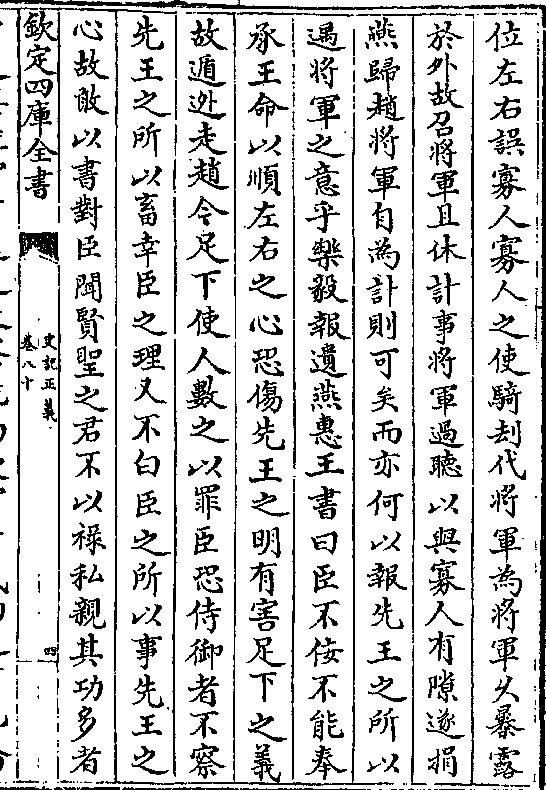 位左右誤寡人寡人之使騎刦代將軍為將軍久暴露
於外故召將軍且休計事將軍過聽以與寡人有隙遂捐
燕歸趙將軍自為計則可矣而亦何以報先王之所以
遇將軍之意乎樂毅報遺燕惠王書曰臣不佞不能奉
承王命以順左右之心恐傷先王之明有害足下之義
故遁逃走趙今足下使人數之以罪臣恐侍御者不察
先王之所以畜幸臣之理又不白臣之所以事先王之
心故敢以書對臣聞賢聖之君不以祿私親其功多者
欽定四庫全書
史記正義
卷八十
四